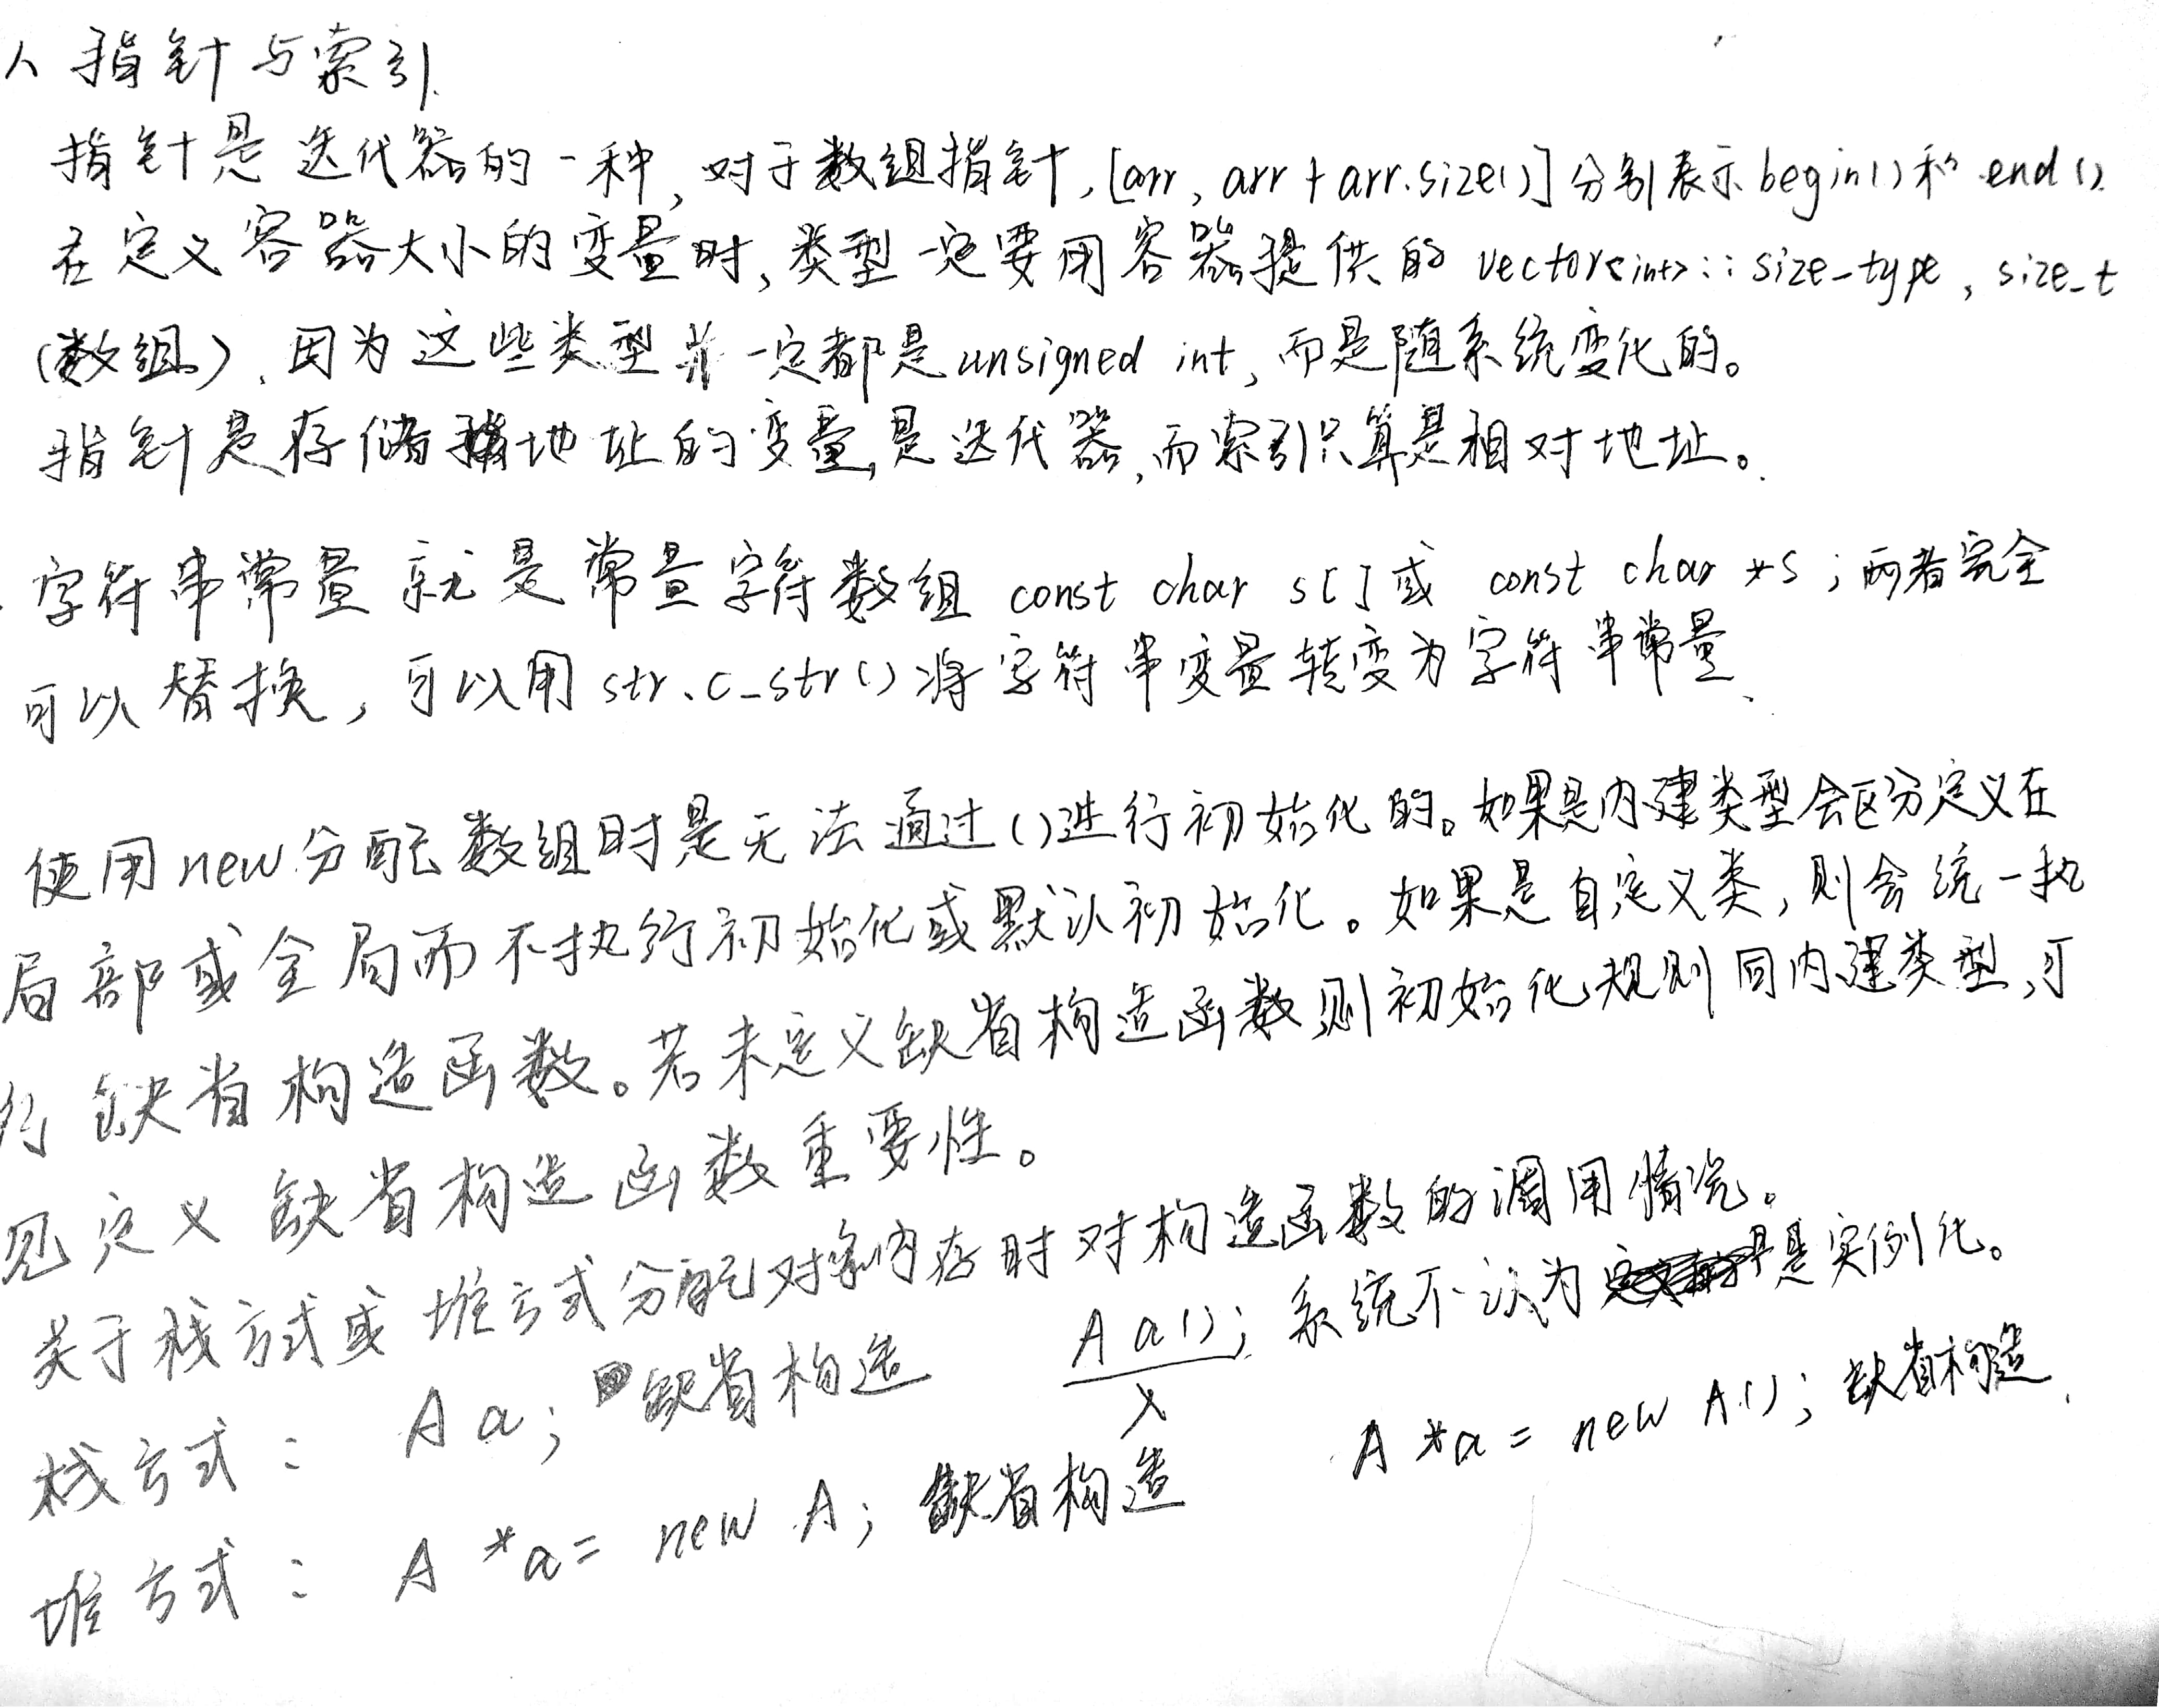 1、指针与索引.
指针是迭代器的一种,对于数组指针,[arr, arr+arr.size()]分别表示begin()和end()
在定义容器大小的变量时,类型一定要用容器提供的 vector<int>::size_type, size_t
(数组),因为这些类型非一定都是unsigned int,而是随系统变化的。
指针是存储地址的变量,是迭代器,而索引只算是相对地址。
字符串常量就是常量字符数组 const char s[]或 const char *s;两者完全
可以替换,可以用str.c_str()将字符串变量转变为字符串常量.
使用new分配数组时是无法通过()进行初始化的。如果是内建类型会区分定义在
局部或全局而不执行初始化或默认初始化。如果是自定义类,则会统一执
行缺省构造函数。若未定义缺省构造函数则初始化规则同内建类型,可
见定义缺省构造函数重要性。
关于栈方式或堆方式分配对象内存时对构造函数的调用情况。
栈方式: A a; 缺省构造 A a(); 系统不认为是实例化。
x
堆方式: A *a = new A; 缺省构造 A *a = new A(); 缺省构造.